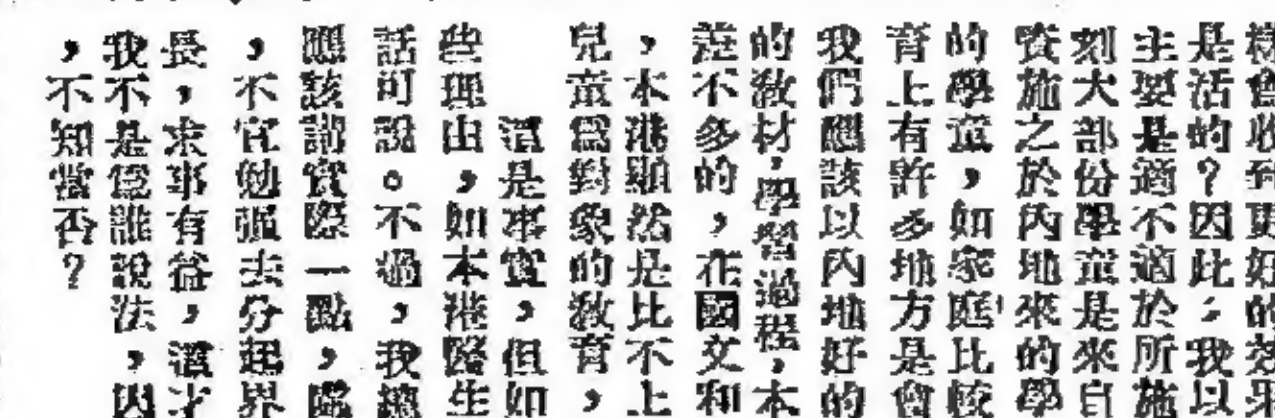 樣會收到更好的效果
是活的？因此，我以
主要是適不適於所施
刻大部份學童是來自
資施之於內地來的學
的學童，如家庭比較
育上有許多地方是會
我們應該以內地好的
的教材，學習過程，本
差不多的，在國文和
，本港顯然是比不上
兒童爲對象的教育，
這是事實，但如
些理由，如本港醫生
話可說。不過，我總
應該講實際一點，
，不宜勉强去分起界
長，求事有益，這才
我不是爲誰說法，因
，不知當否？